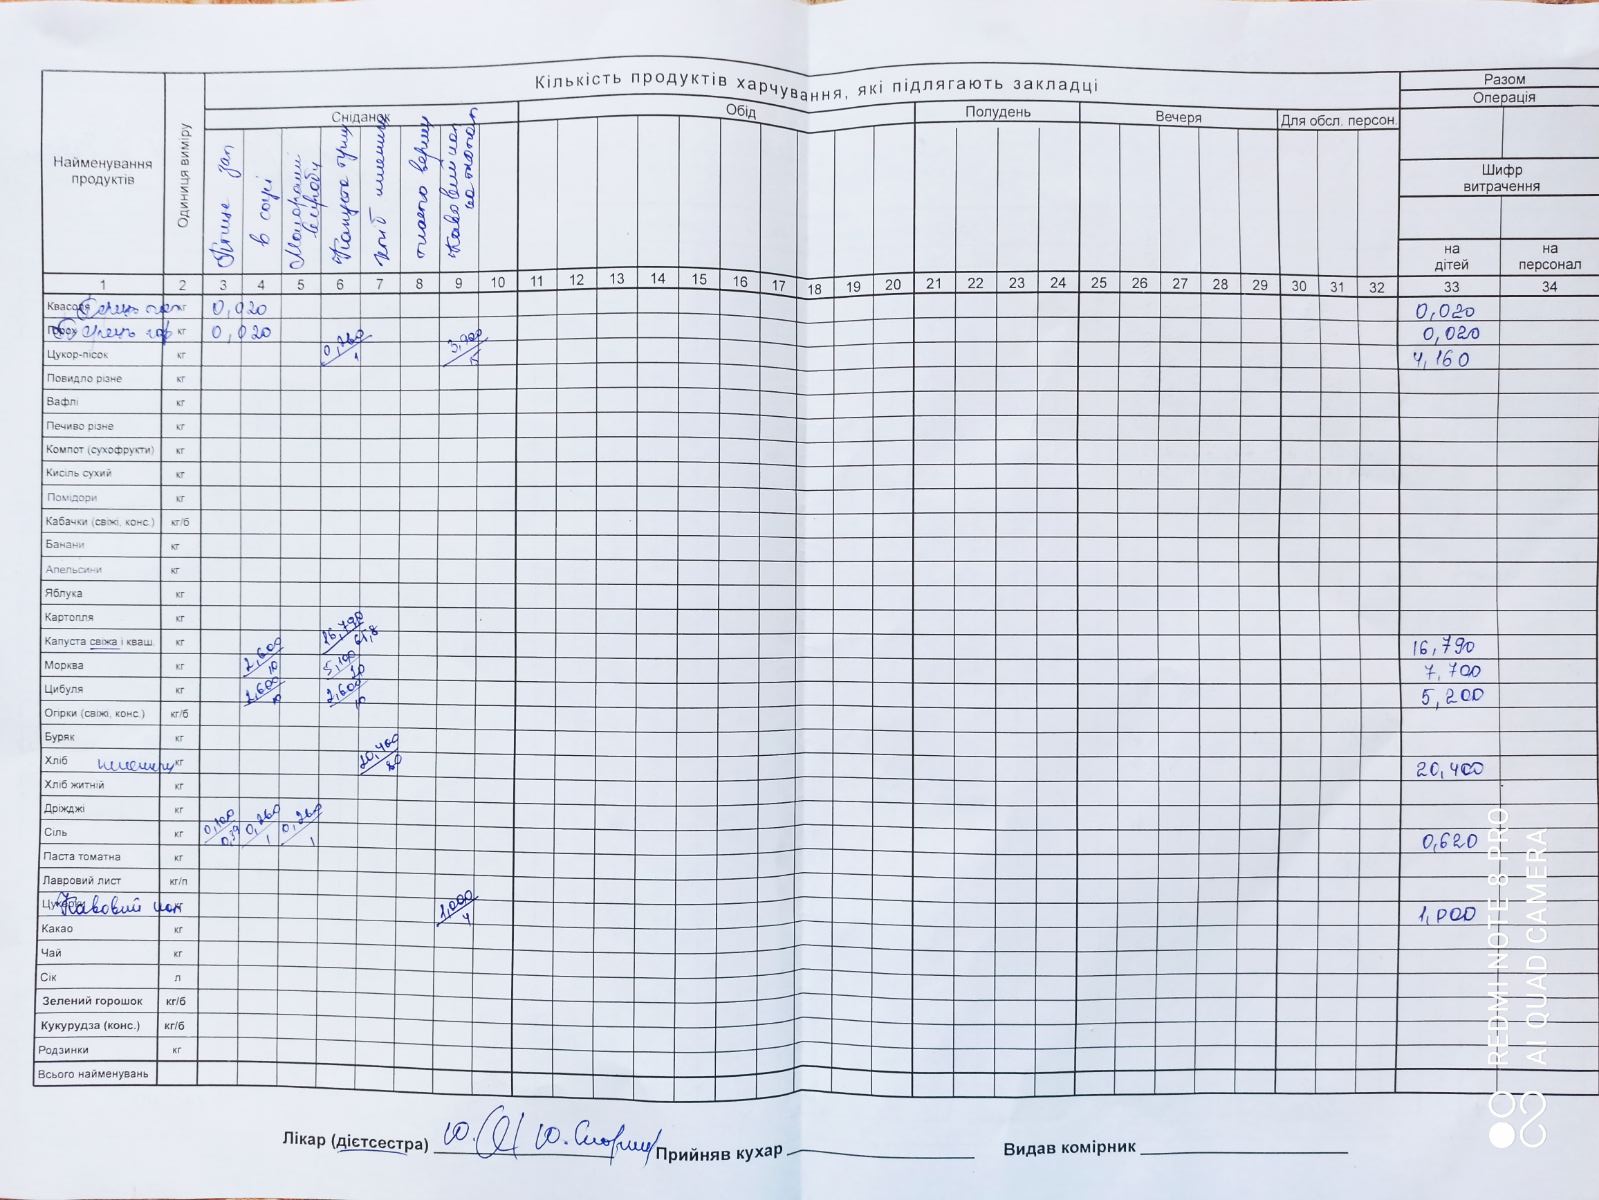 Кількість продуктів харчування, які підлягають закладці
Разом
Операція
Шифр витрачення
на дітей
на персонал
Найменування продуктів
Одиниця виміру
Сніданок
Обід
Полудень
Вечеря
Для обсл. персон.
в соусі
Макаронні вироби
Капуста туш
масло верш
Кавовий нап
1 2 3 4 5 6 7 8 9 10 11 12 13 14 15 16 17 18 19 20 21 22 23 24 25 26 27 28 29 30 31 32 33 34
Квасоля кг 0,020 0,020
Горох кг 0,020 0,020
Цукор-пісок кг 0,260/1 3,900/15 4,160
Повидло різне кг
Вафлі кг
Печиво різне кг
Компот (сухофрукти) кг
Кисіль сухий кг
Помідори кг
Кабачки (свіжі, конс.) кг/б
Банани кг
Апельсини кг
Яблука кг
Картопля кг
Капуста свіжа і кваш. кг 16,790 16,790
Морква кг 2,600/10 5,100/20 7,700
Цибуля кг 2,600/10 2,600/10 5,200
Огірки (свіжі, конс.) кг/б
Буряк кг
Хліб кг 20,400/80 20,400
Хліб житній кг
Дріжджі кг
Сіль кг 0,100/0,39 0,260/1 0,260/1 0,620
Паста томатна кг
Лавровий лист кг/п
Кавовий нап кг 1,000/4 1,000
Какао кг
Чай кг
Сік л
Зелений горошок кг/б
Кукурудза (конс.) кг/б
Родзинки кг
Всього найменувань
Лікар (дієтсестра)
Прийняв кухар
Видав комірник
REDMI NOTE 8 PRO
AI QUAD CAMERA